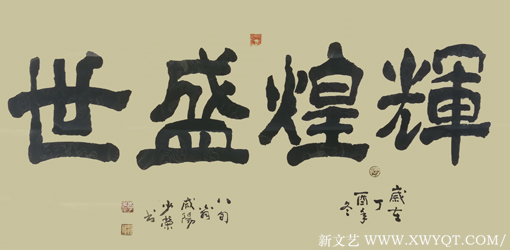 輝煌盛世
歲在
丁
酉年
冬
八旬
翁
咸陽
少榮
书
新文艺 www.XWYQT.COM/